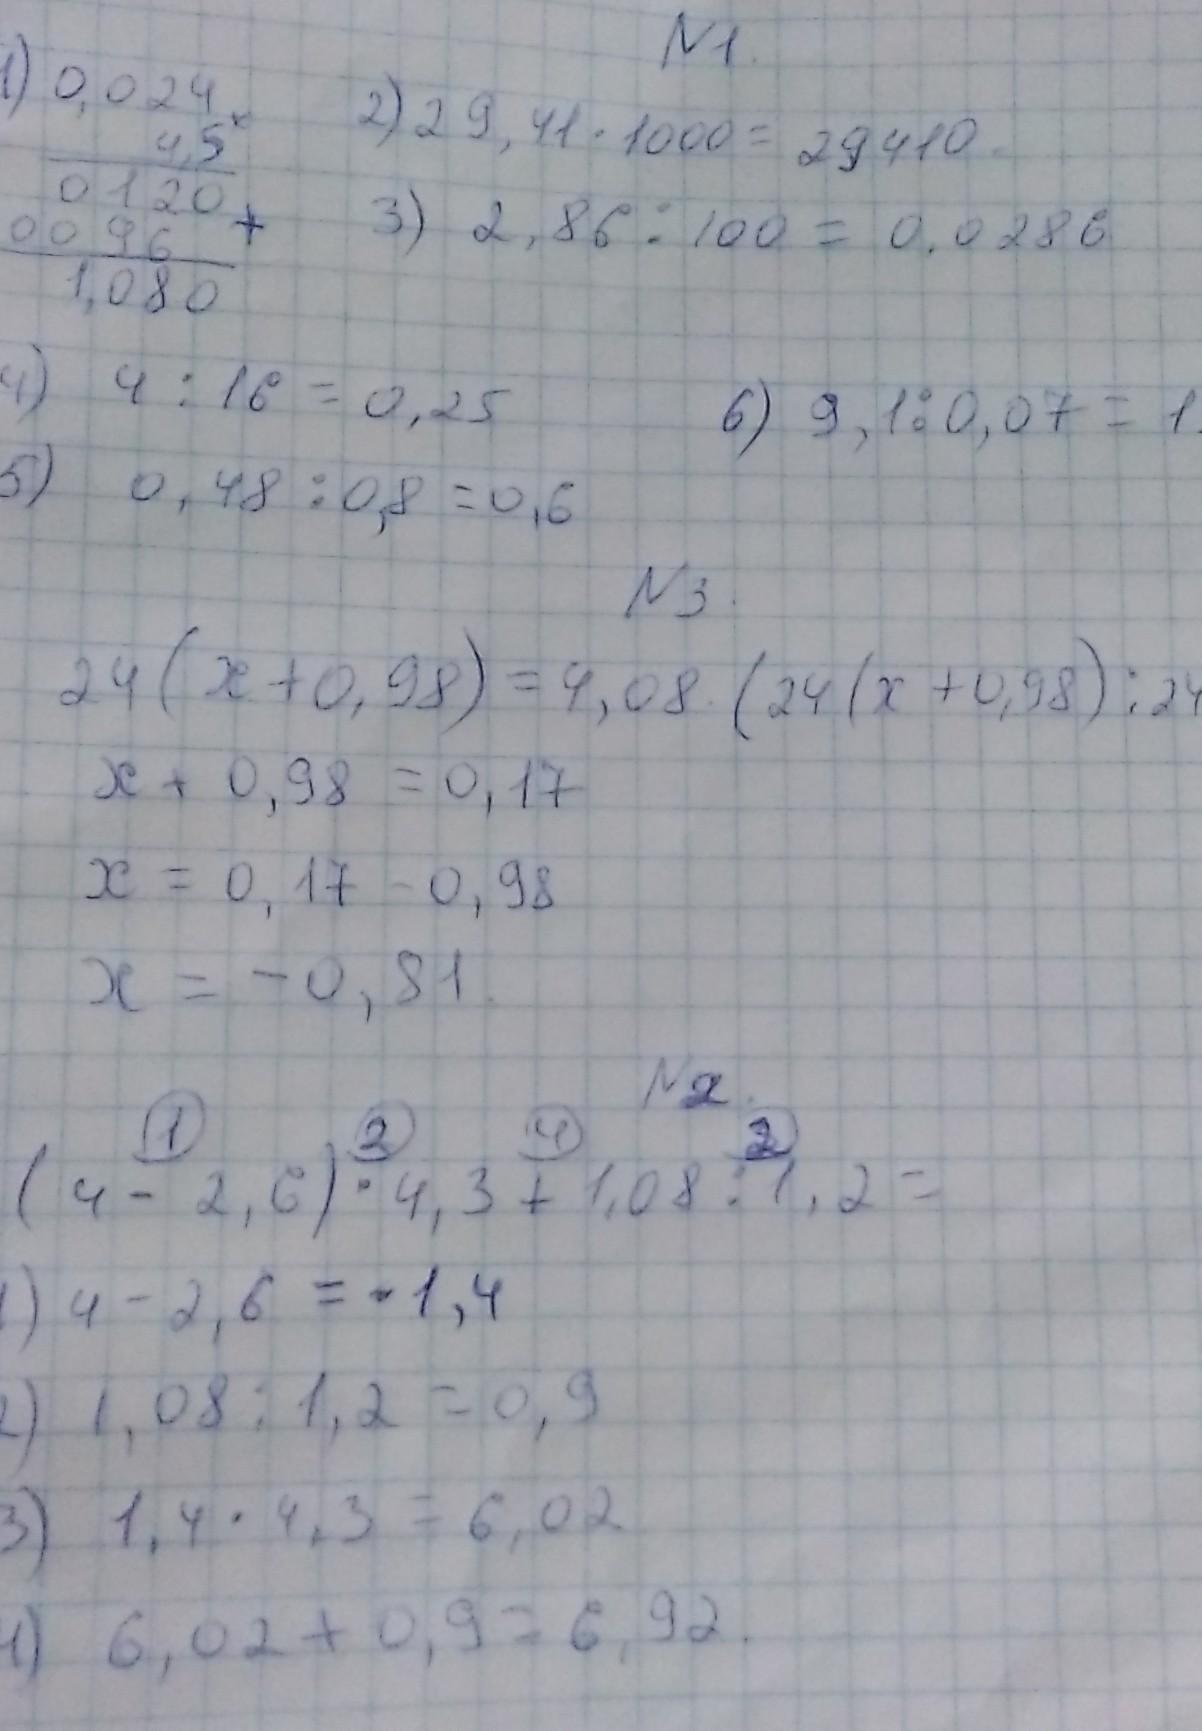 N1.
1) 0,024
4,5 ×
0120
0096 +
1,080
2) 29,41 · 1000 = 29410.
3) 2,86 : 100 = 0.0286
4) 4 : 16 = 0,25
5) 0,48 : 0,8 = 0,6
6) 9,1 : 0,07 = 1
N3.
24(x + 0,98) = 4,08. (24(x + 0,98) : 24
x + 0,98 = 0,17
x = 0,17 - 0,98
x = -0,81.
N2.
1 2 4 2
(4 - 2,6) · 4,3 + 1,08 : 1,2 =
1) 4 - 2,6 = - 1,4
2) 1,08 : 1,2 = 0,9
3) 1,4 · 4,3 = 6,02
4) 6,02 + 0,9 = 6,92.